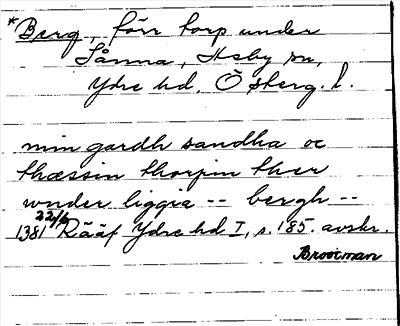 *Berg, förr torp under
Sånna, Asby sn,
Ydre hd. Ö stberg. l.
min gardh sandha oc
thæssin thorpin ther
wnder liggia -- bergh --
1381 22/6 Rääf Ydre hd I, s. 185. avskr.
Broocman